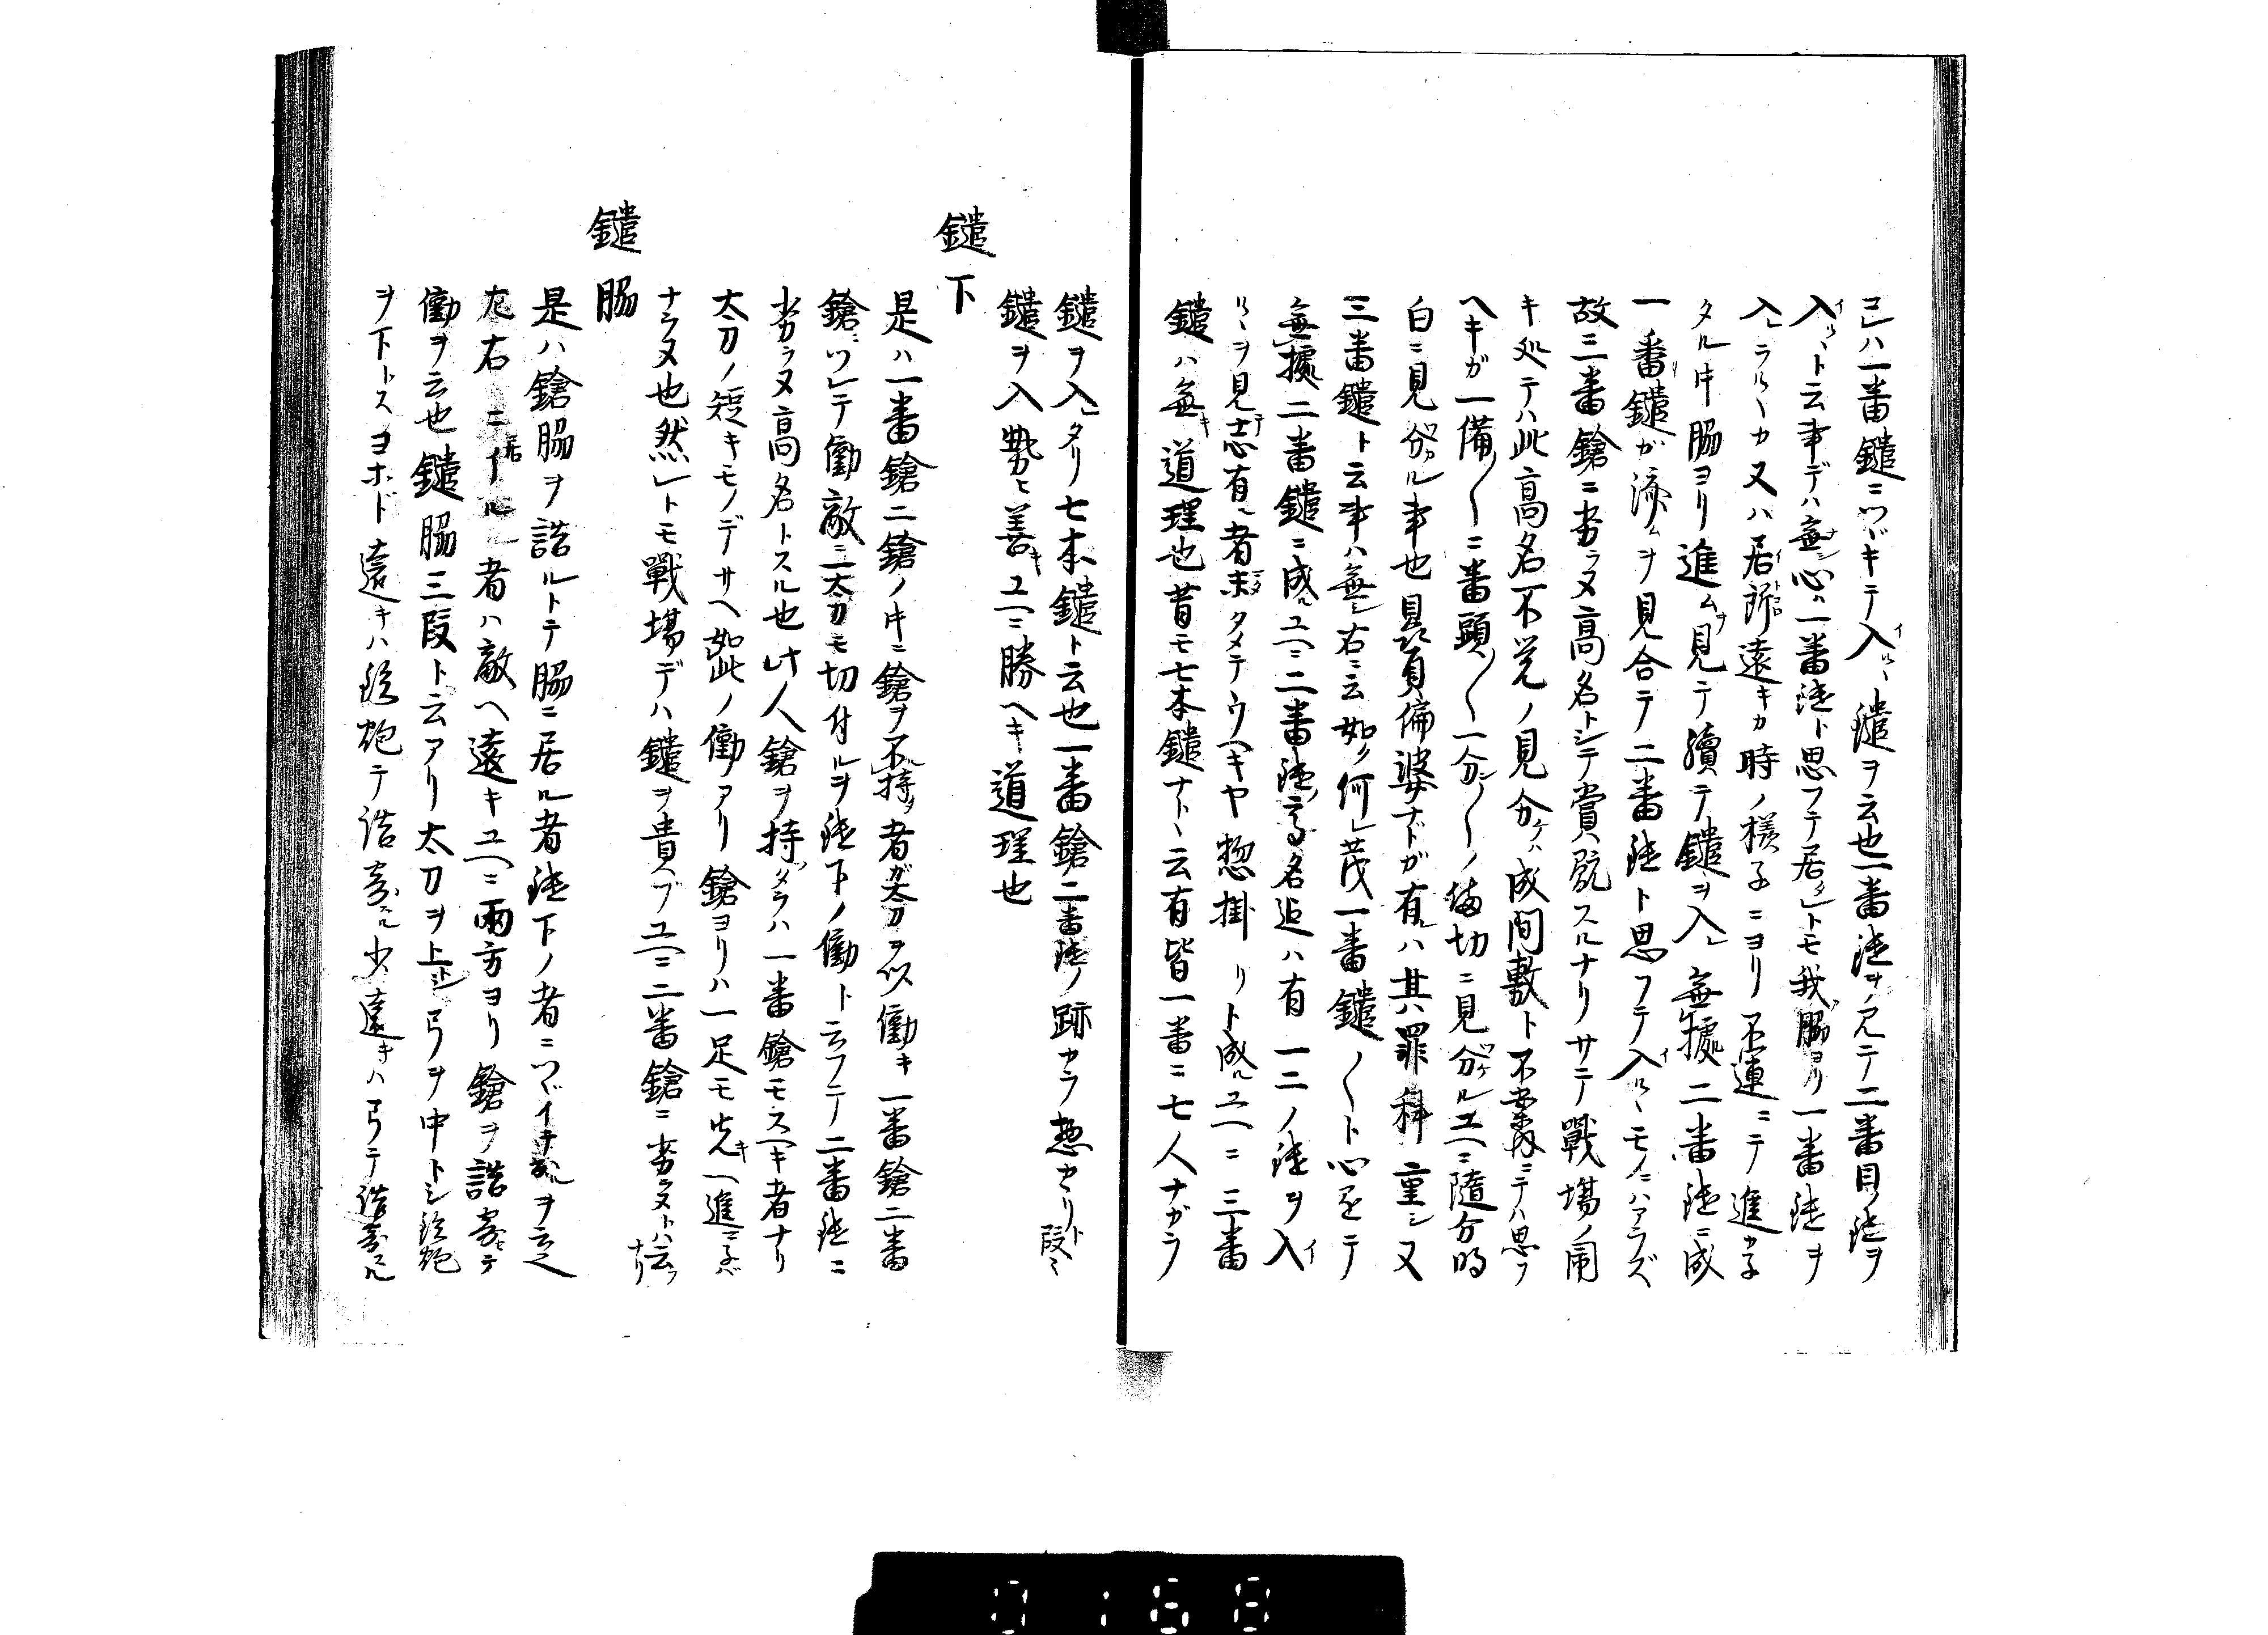 是ハ一番鑓ニツヾキテ入ルヽ鑓ヲ云也一番鑓ヲ見テ二番目ノ鑓ヲ
入ルヽト云事デハ無シ心ハ一番鑓ト思フテ居タレトモ我脇ヨリ一番鑓ヲ
入レラルヽカ又ハ居所遠キカ時ノ様子ニヨリ不運ニテ進カネ
タル中脇ヨリ進ムヲ見テ續テ鑓ヲ入レ無據二番鑓ニ成
一番鑓ガ済ムヲ見合テ二番鑓ト思フテ入ルヽモノニハアラズ
故三番鎗ニ劣ラヌ高名トシテ賞翫スルナリサテ戰場ノ閙
キ処テハ此高名不覚ノ見分ケハ成間敷ト不案内ニテハ思フ
ヘキガ一備〳〵ニ番頭〳〵一分〳〵ノ備切ニ見分ケル故ニ随分明
白ニ見分ル事也贔負偏婆ナドガ有レハ其罪科重シ又
三番鑓ト云事ハ無シ右ニ云如ク何レ茂一番鑓〳〵ト心至テ
無據二番鑓ニ成ル故ニ二番鑓高名迄ハ有一二ノ鑓ヲ入
ルヽヲ見テ志有ル者未タメテウヘキヤ惣掛リト成ル故ニ三番
鑓ハ無キ道理也昔モ七本鑓ナトヽ云有皆一番ニ七人ナガラ
鑓ヲ入レタリ七本鑓ト云也一番鎗二番鑓ノ跡カラ惣カヽリト段々
鑓ヲ入勢ヒ善キ故ニ勝ヘキ道理也
鑓下
是ハ一番鎗二鎗ノ中ニ鎗ヲ不持者ガ太刀ヲ以働キ一番鎗二番
鎗ニツレテ働敵ニ二太刀モ切付ルヲ鑓下ノ働ト云フテ二番鑓ニ
劣ラヌ高名トスル也此人鎗ヲ持タラハ一番鎗モスヘキ者ナリ
太刀ノ短キモノデサヘ如此ノ働アリ鎗ヨリハ一足モ先キヘ進マネバ
ナラヌ也然レトモ戰場デハ鑓ヲ貴ブ故ニ二番鎗ニ劣ラヌトハ云フナリ
鑓脇
是ハ鎗脇ヲ詰ルトテ脇ニ居ル者鑓下ノ者ニツヾイテ詰ルヲ云之
左右ニ居ル者ハ敵ヘ遠キ故ニ両方ヨリ鎗ヲ詰寄セテ
働ヲ云也鑓脇三段ト云アリ太刀ヲ上トシ弓ヲ中トシ鉄炮
ヲ下トスヨホド遠キハ鉄炮テ詰寄ル少遠キハ弓テ詰寄スル